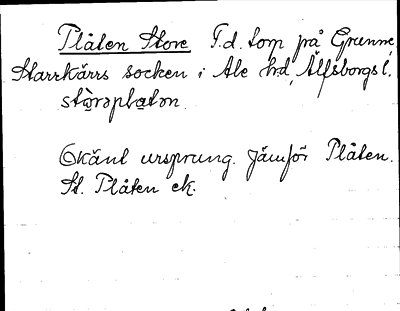 Plåten Store F.d. torp på Grunne,
Starrkärrs socken i Ale hd, Älfsborgs l.
stòrəplatən
Okänt ursprung. Jämför Plåten.
St. Plåten ek.